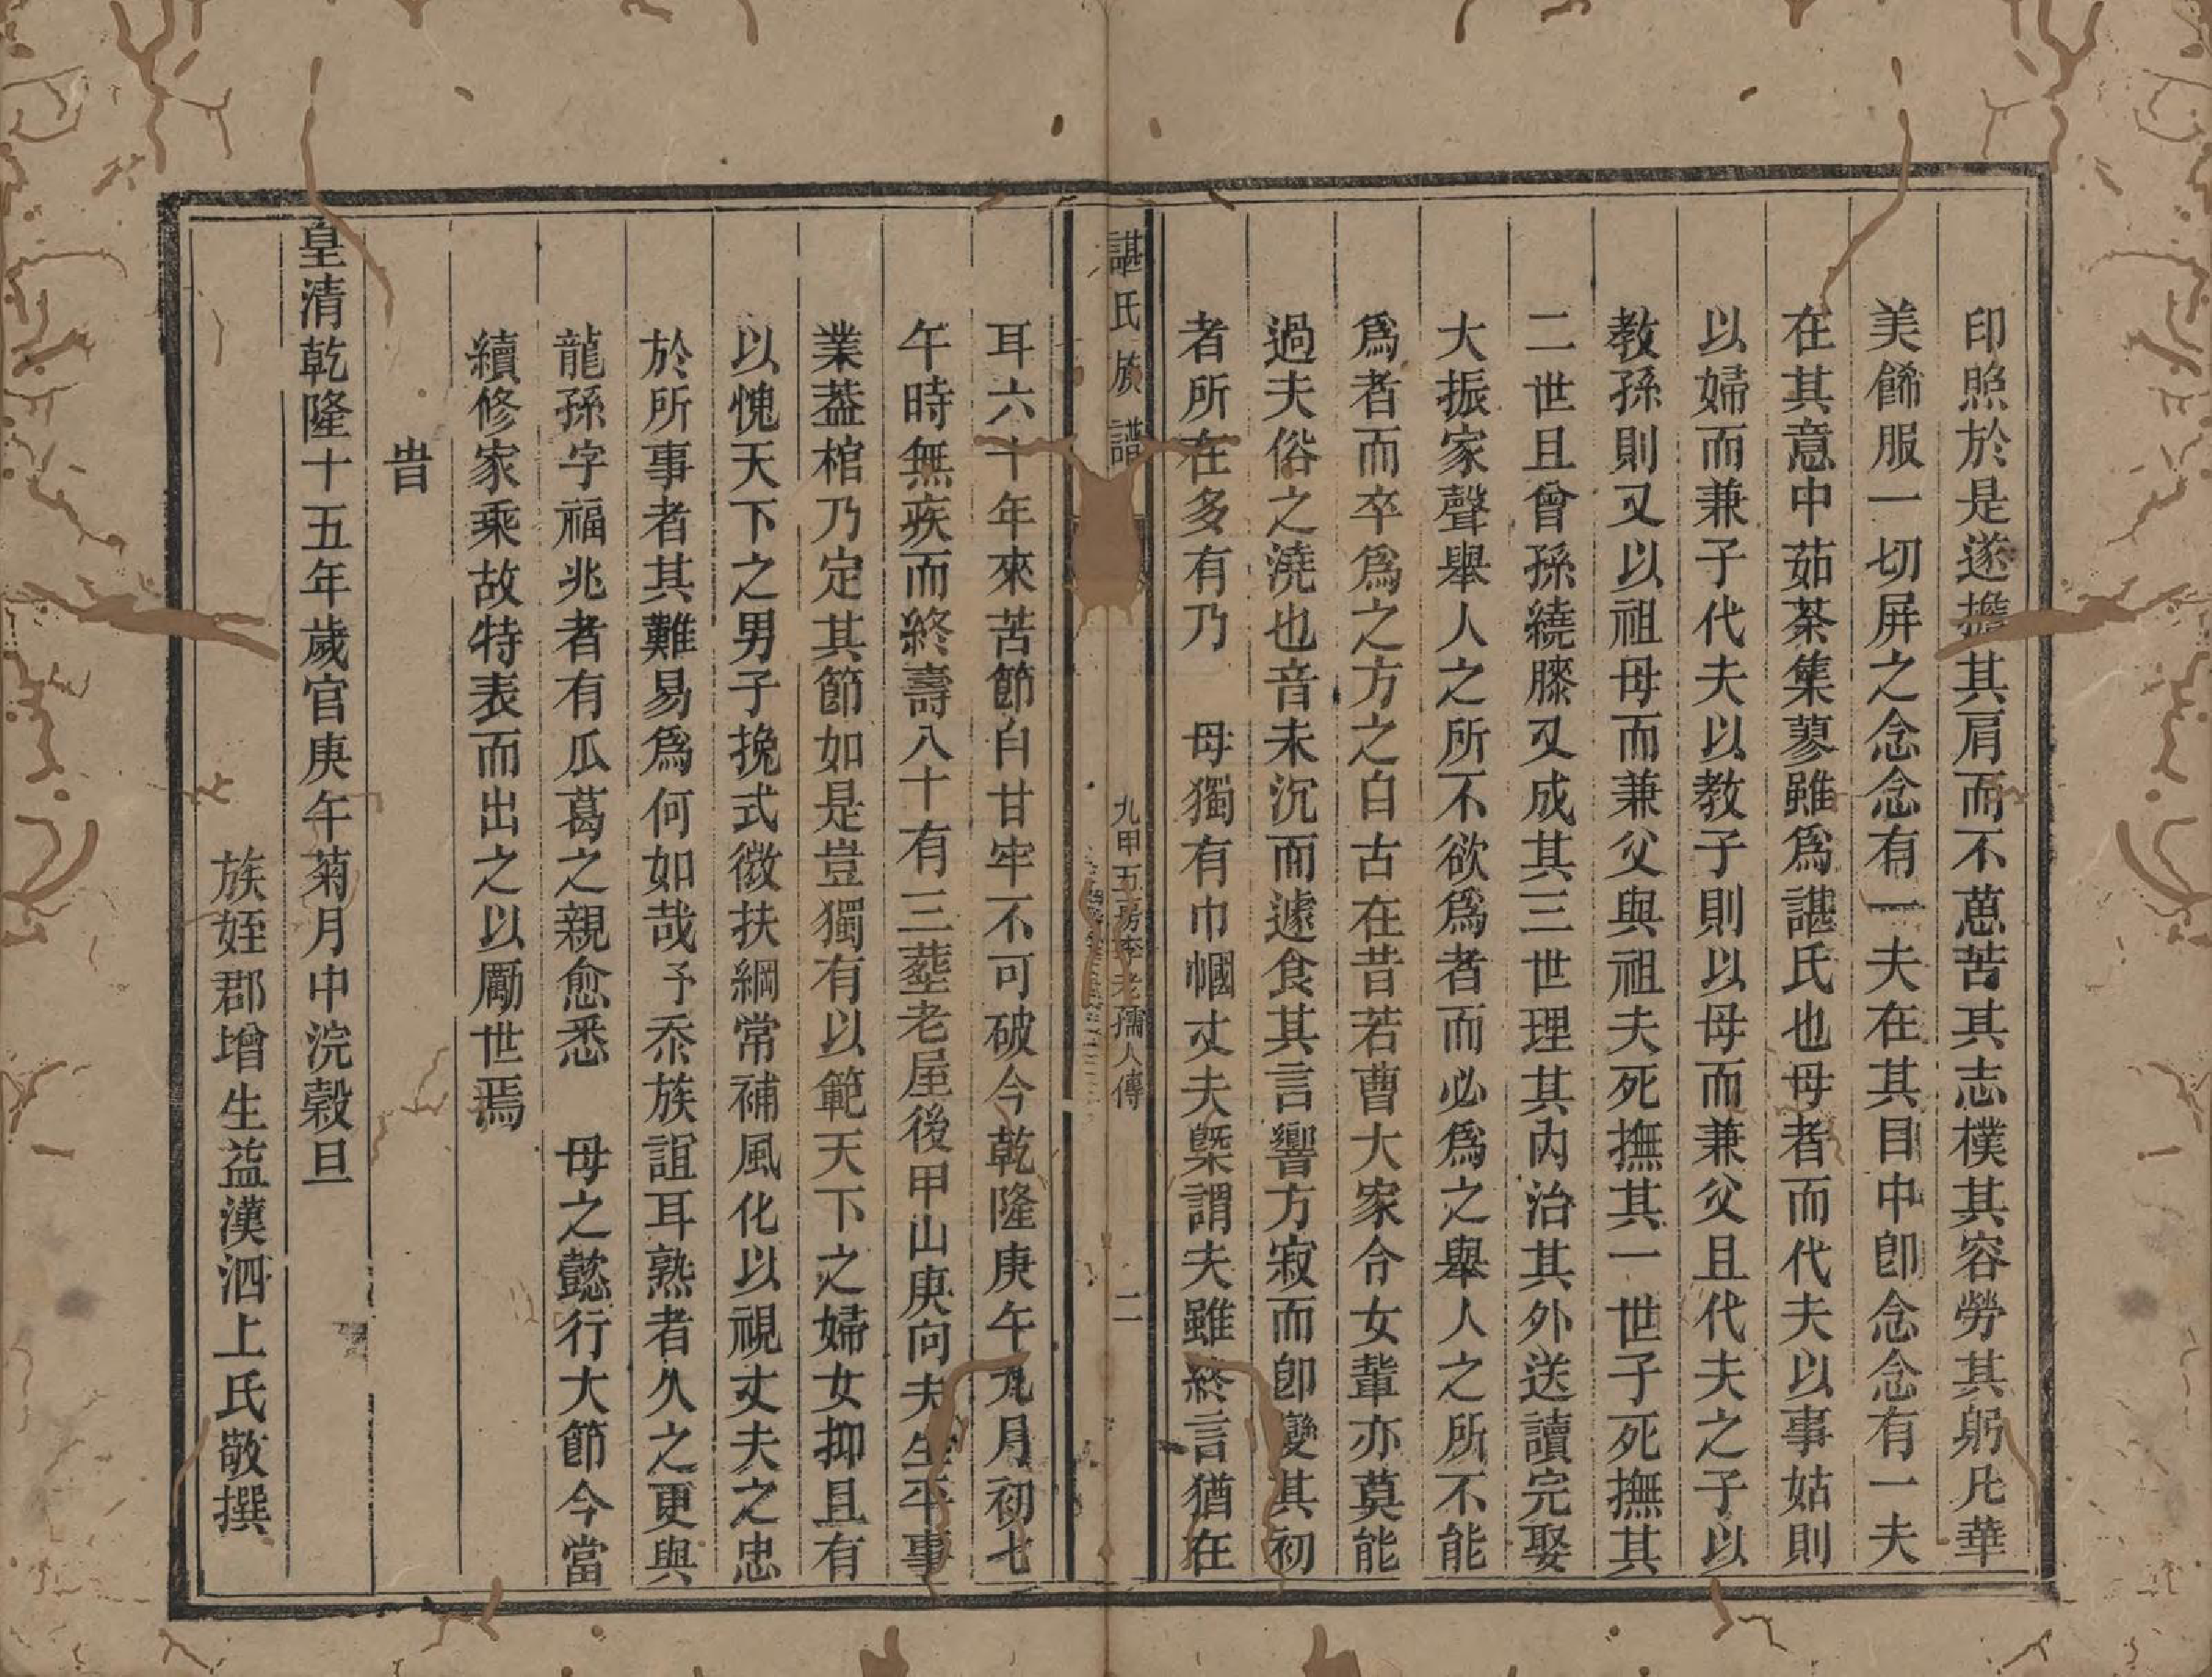 印照於是遂擔其肩而不蒠苦其志樸其容勞其躬凡華
美餙服一切屏之念念有一夫在其目中卽念念有一夫
在其意中茹荼集蓼雖爲諶氏也母者而代夫以事姑則
以婦而兼子代夫以教子則以母而兼父且代夫之子以
教孫則又以祖母而兼父與祖夫死撫其一世子死撫其
二世且曾孫繞膝又成其三世理其內治其外送讀完娶
大振家聲舉人之所不欲爲者而必爲之舉人之所不能
爲者而卒爲之方之白古在昔若曹大家令女輩亦莫能
過夫俗之澆也音未沉而遽食其言響方寂而卽變其初
者所在多有乃　母獨有巾幗丈夫槩謂夫雖終言猶在
諶氏族譜
九甲五房李老孺人傳
二
耳六十年來苦節白甘牢不可破今乾隆庚午九月初七
午時無疾而終壽八十有三塟老屋後甲山庚向夫生平事
業葢棺乃定其節如是豈獨有以範天下之婦女抑且有
以愧天下之男子挽式微扶綱常補風化以視丈夫之忠
於所事者其難易爲何如哉予忝族誼耳熟者久之更與
龍孫字福兆者有瓜葛之親愈悉　母之懿行大節今當
續修家乘故特表而出之以勵世焉
旹
皇清乾隆十五年歲官庚午菊月中浣榖旦
族姪郡增生益漢泗上氏敬撰